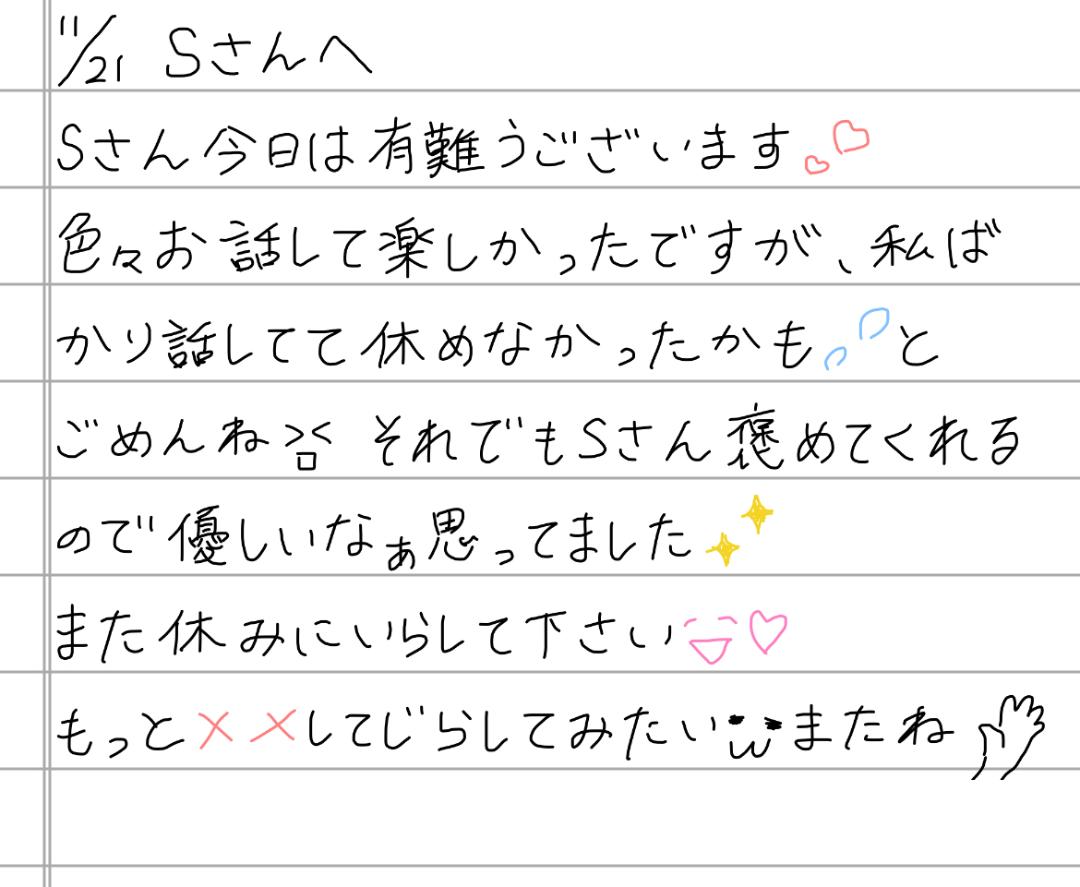 11/21 Sさんへ
Sさん今日は有難うございます
色々お話して楽しかったですが、私ば
かり話してて休めなかったかもと
ごめんね それでもSさん褒めてくれる
ので優しいなぁ思ってました
また休みにいらして下さい
もっと××してじらしてみたい またね